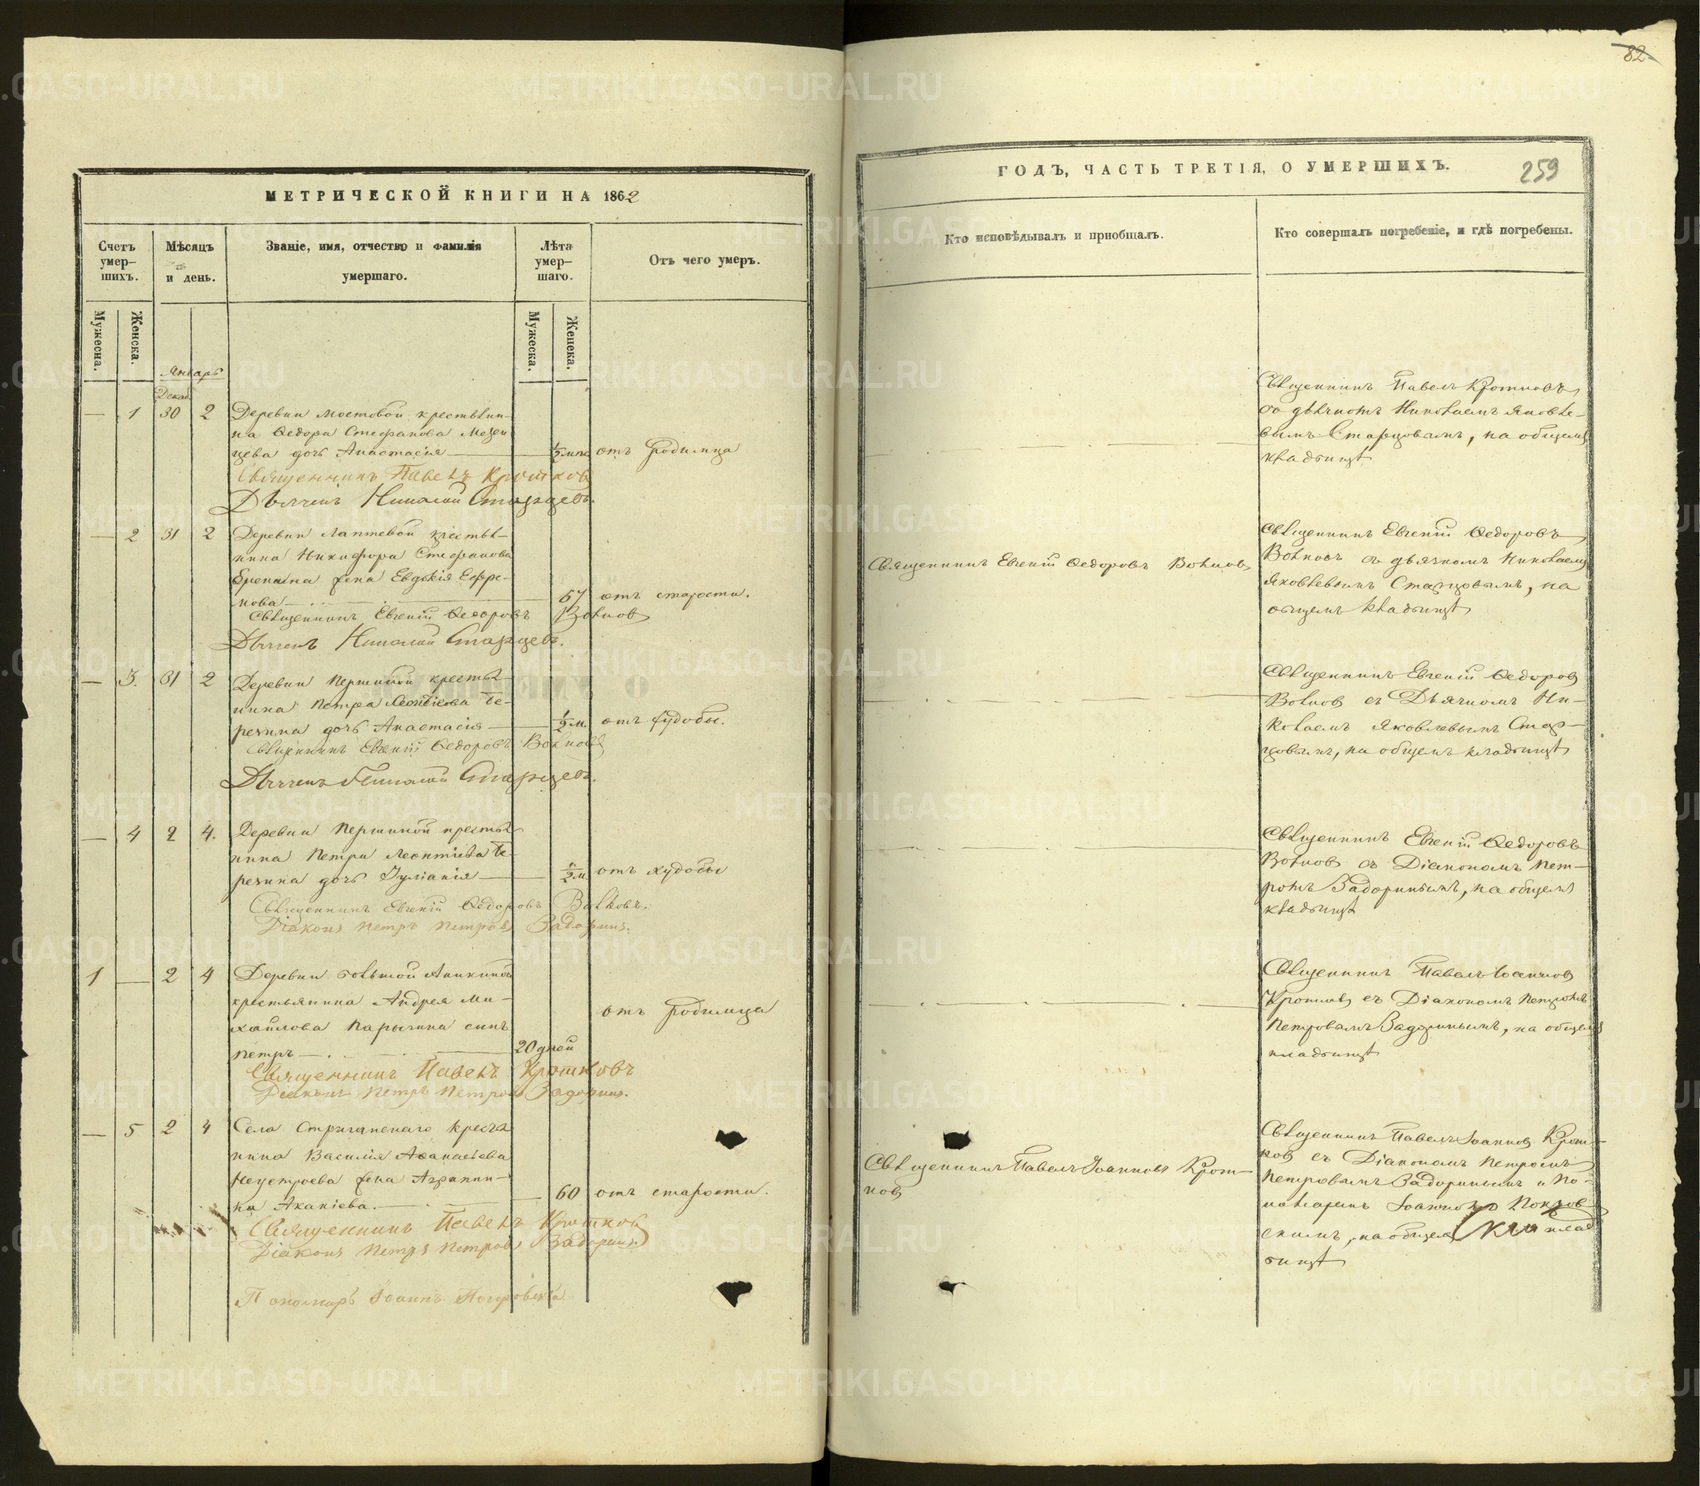 82
МЕТРИЧЕСКОЙ КНИГИ НА 1862
Счетъ умер-
шихъ.
Мѣсяцъ
и день.
Званіе, имя, отчество и фамилія
умершаго.
Лѣта
умер-
шаго.
Отъ чего умеръ.
Мужеска.
Женска.
Мужеска.
Женска.
Январь
Декаб.
— 1 30 2 Деревни Мостовой крестьяни-
на Ѳедора Стефанова
цева дочь Анастасія ½ м. отъ родимца
Священникъ Павелъ Кротковъ
Дьячекъ Николай Старцевъ.
— 2 31 2 Деревни Лаптевой крестья-
нина Никифора Стефанова
жена Евдокія Ефре-
мова 67 отъ старости.
Священникъ Евгеній Ѳедоровъ Волковъ
Дьячекъ Николай Старцевъ.
— 3. 31 2 Деревни Першиной крестья-
нина Петра Леонтіева Те-
рехина дочь Анастасія ½ м. отъ худобы.
Священникъ Евгеній Ѳедоровъ Волковъ
Дьячекъ Николай Старцевъ.
— 4 2 4. Деревни Першиной крестья-
нина Петра Леонтіева Те-
рехина дочь Іуліанія ½ м отъ худобы
Священникъ Евгеній Ѳедоровъ Волковъ.
Діаконъ Петръ Петровъ Задоринъ.
1 — 2 4 Деревни большой Аникиной
крестьянина Андрея Ми-
хайлова Парыгина сынъ
Петръ 20 дней отъ родимца
Священникъ Павелъ Кротковъ
Діаконъ Петръ Петровъ Задоринъ.
— 5 2 4 Села Стриганскаго крестья
нина Василія Аѳанасьева
Неустроева жена Агрипи-
на Акакіева. 60 отъ старости.
Священникъ Павелъ Кротковъ
Діаконъ Петръ Петровъ Задоринъ
Пономарь Іоаннъ Покровскій
ГОДЪ, ЧАСТЬ ТРЕТІЯ, О УМЕРШИХЪ. 259
Кто исповѣдывалъ и пріобщалъ.
Кто совершалъ погребеніе, и гдѣ погребены.
Священникъ Павелъ Кротковъ
съ дьячкомъ Николаемъ Яковле-
вымъ Старцовымъ, на общемъ
кладбищѣ
Священникъ Евгеній Ѳедоровъ Волковъ
Священникъ Евгеній Ѳедоровъ
Волковъ съ дьячкомъ Николаемъ
Яковлевымъ Старцовымъ, на
общемъ кладбищѣ
Священникъ Евгеній Ѳедоров
Волков съ Дьячкомъ Ни-
колаемъ Яковлевымъ Стар-
цовымъ, на общемъ кладбищѣ
Священникъ Евгеній Ѳедоровъ
Волков съ Діакономъ Пет-
ромъ Задоринымъ, на общемъ
кладбищѣ
Священникъ Павелъ Іоаннов
Кротков съ Діакономъ Петромъ
Петровымъ Задоринымъ, на общемъ
кладбищѣ
Священникъ Павелъ Іоанновъ Крот-
ков
Священникъ Павелъ Іоаннов Крот-
ков съ Діакономъ Петромъ
Петровымъ Задоринымъ и По-
номаремъ Іоанномъ Покров-
скимъ, на общемъ клад
бищѣ
METRIKI.GASO-URAL.RU